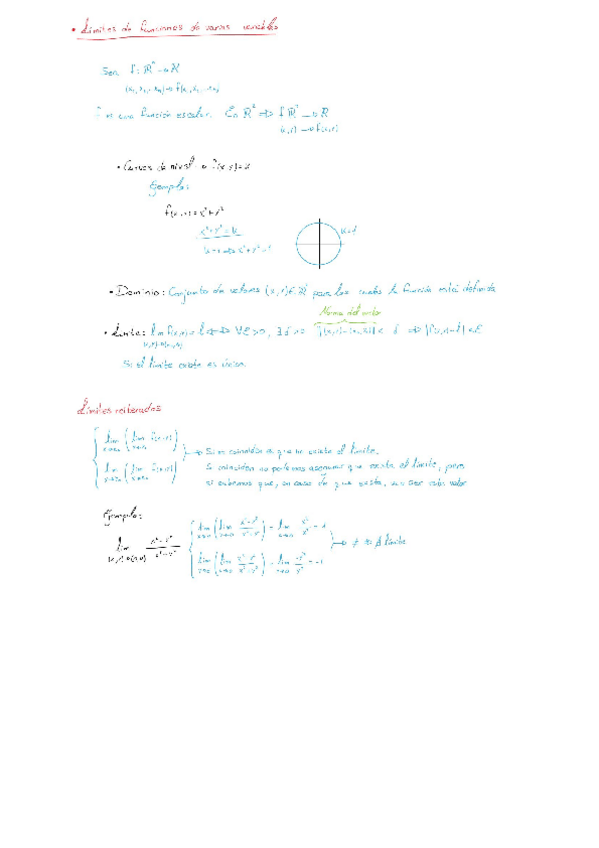 • Límites de funciones de varias variables
Sea f: ℝⁿ → ℝ
(x₁, x₂, ... xₙ) → f(x₁, x₂, ... xₙ)
f es una función escalar. En ℝ² ⇒ f: ℝ² → ℝ
(x, y) → f(x, y)
• Curvas de nivel → f(x, y) = k
Ejemplo:
f(x, y) = x² + y²
x² + y² = k
k = 1 ⇒ x² + y² = 1
k=1
• Dominio: Conjunto de valores (x, y) ∈ ℝ² para los cuales la función está definida
Norma del vector
• Límite: lim f(x, y) = l ⇔ ∀ε > 0, ∃ δ > 0 ‖(x, y) - (x₀, y₀)‖ < δ ⇒ |f(x, y) - l| < ε
(x, y)→(x₀, y₀)
Si el límite existe es único.
Límites reiterados
lim (lim f(x, y)) → Si no coinciden es que no existe el límite.
Si coinciden no podemos asegurar que exista el límite, pero
lim (lim f(x, y)) si sabemos que, en caso de que exista, va a ser este valor
Ejemplo:
lim (lim (x² - y²)/(x² + y²)) = lim x²/x² = 1
lim (x² - y²)/(x² + y²) → ≠ ⇒ ∄ límite
(x, y)→(0, 0)
lim (lim (x² - y²)/(x² + y²)) = lim -y²/y² = -1